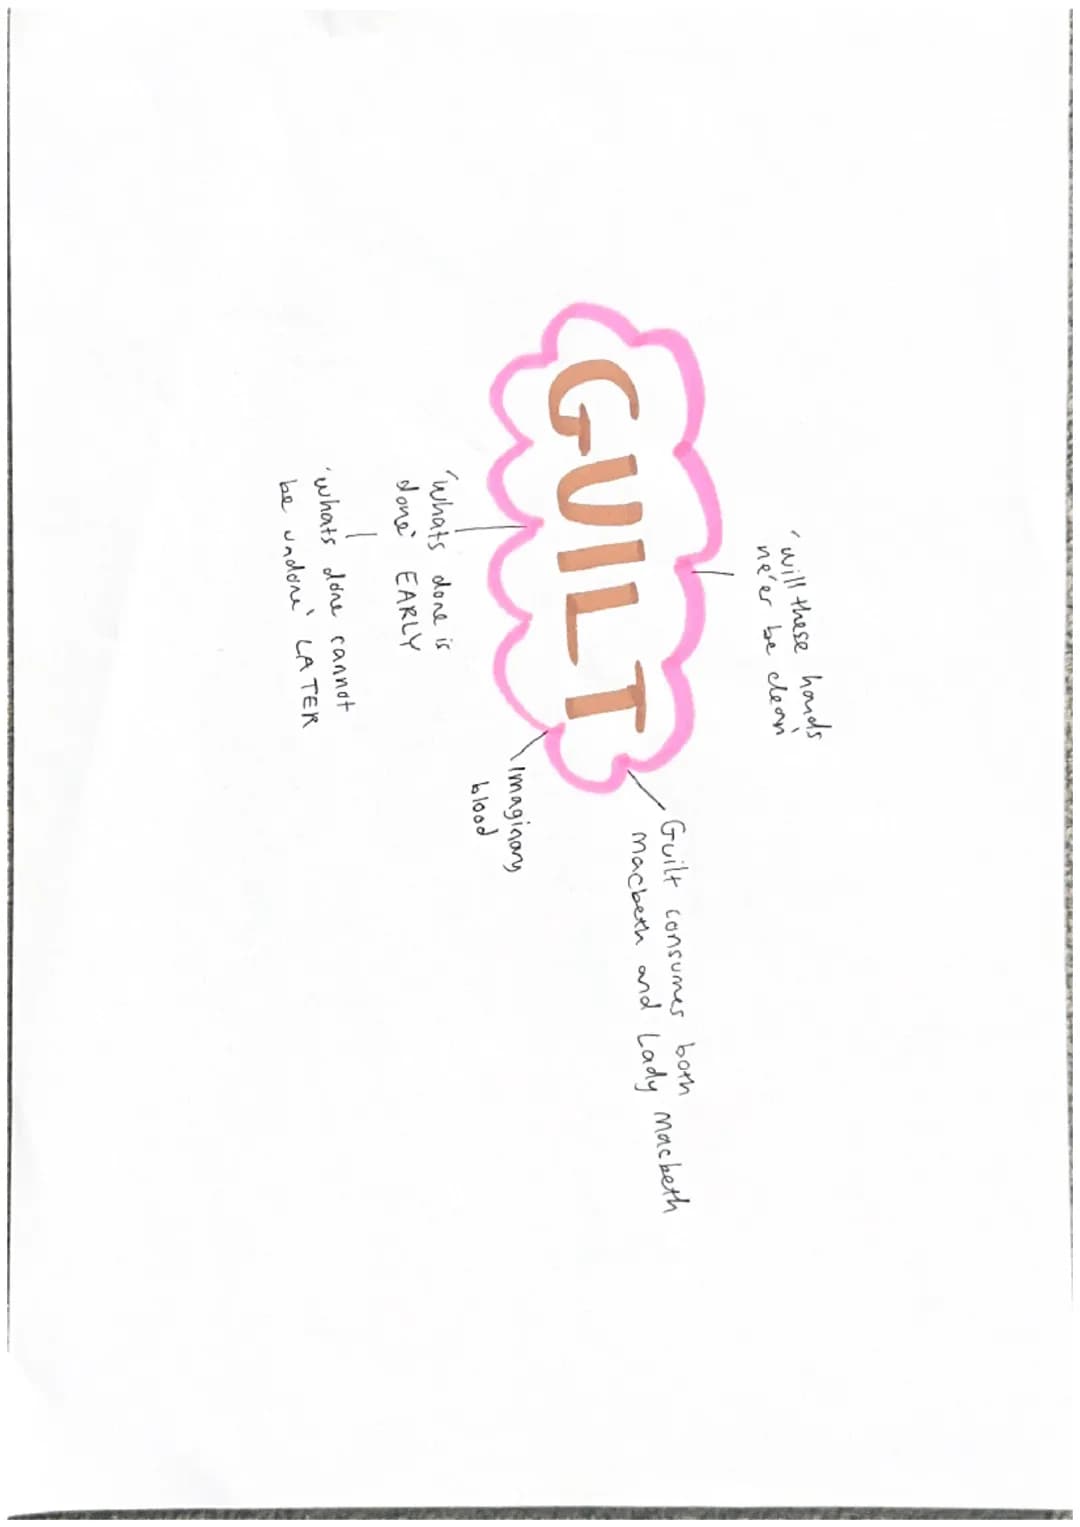 'will these hands
ne'er be clean'
GUILT
Guilt consumes both
macbeth and Lady Macbeth
'whats done is
done' EARLY
'whats done cannot
be undone' LATER
imaginary
blood